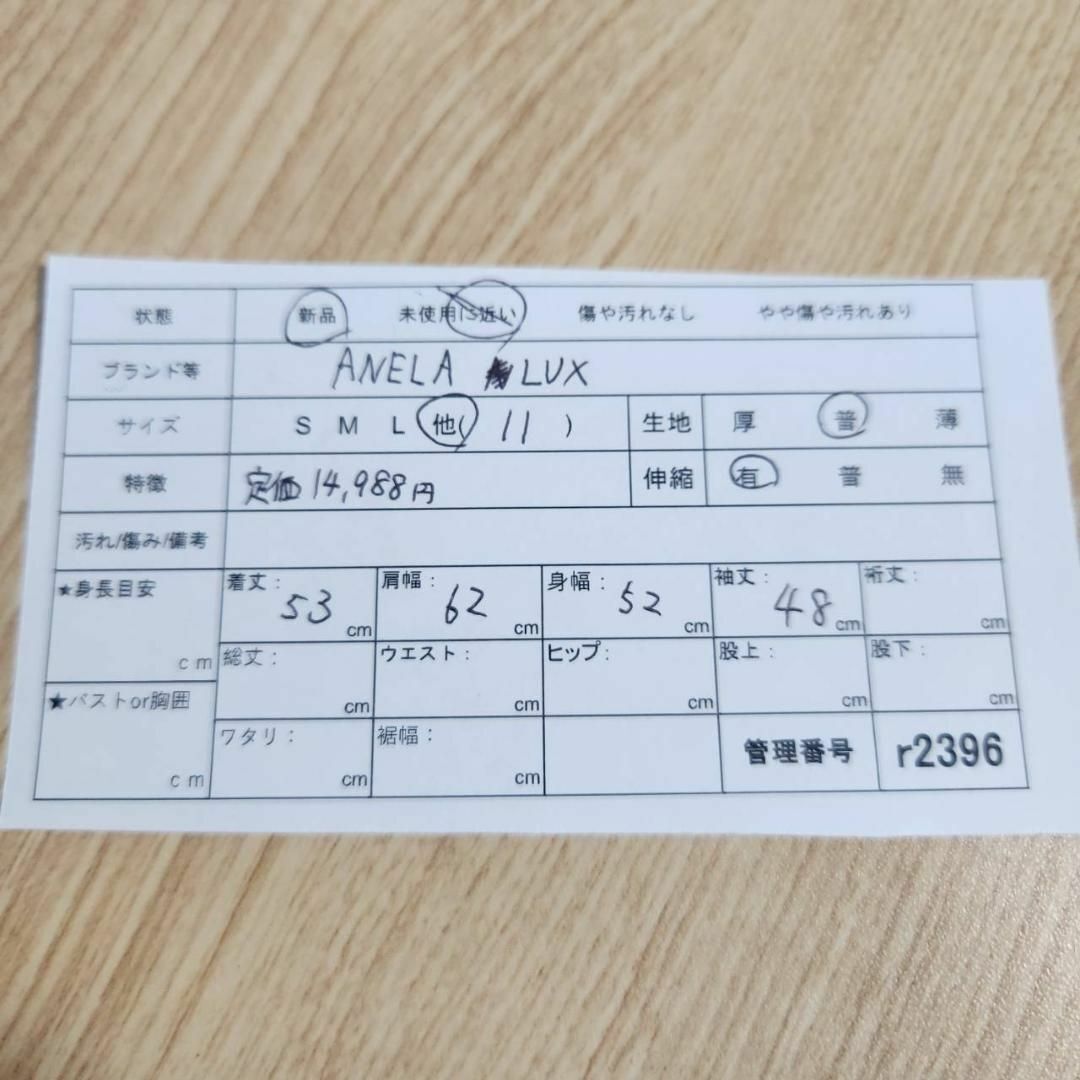 状態 新品 未使用に近い 傷や汚れなし やや傷や汚れあり
ブランド等 ANELA LUX
サイズ S M L 他( 11 ) 生地 厚 普 薄
特徴 定価14,988円 伸縮 有 普 無
汚れ/傷み/備考
★身長目安 cm 着丈: 53 cm 肩幅: 62 cm 身幅: 52 cm 袖丈: 48 cm 裄丈: cm
総丈: cm ウエスト: cm ヒップ: cm 股上: cm 股下: cm
★バストor胸囲 cm ワタリ: cm 裾幅: cm 管理番号 r2396